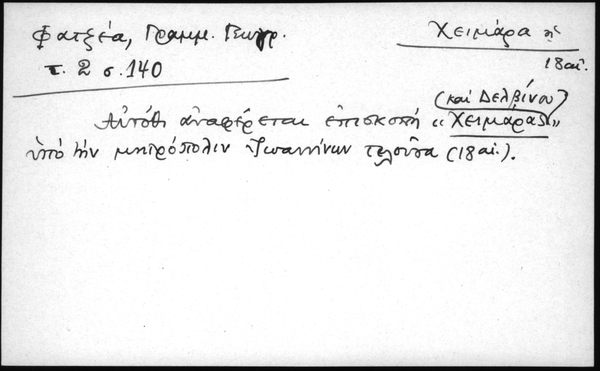 Φατζέα, Γραμμ. Γεωγρ.
τ. 2 σ. 140
Χειμάρα ἡ
18 αἰ.
(καὶ Δελβίνου)
Αὐτόθι ἀναφέρεται ἐπισκοπὴ «Χειμάρας»
ὑπὸ τὴν μητρόπολιν Ἰωαννίνων τελοῦσα (18 αἰ.).